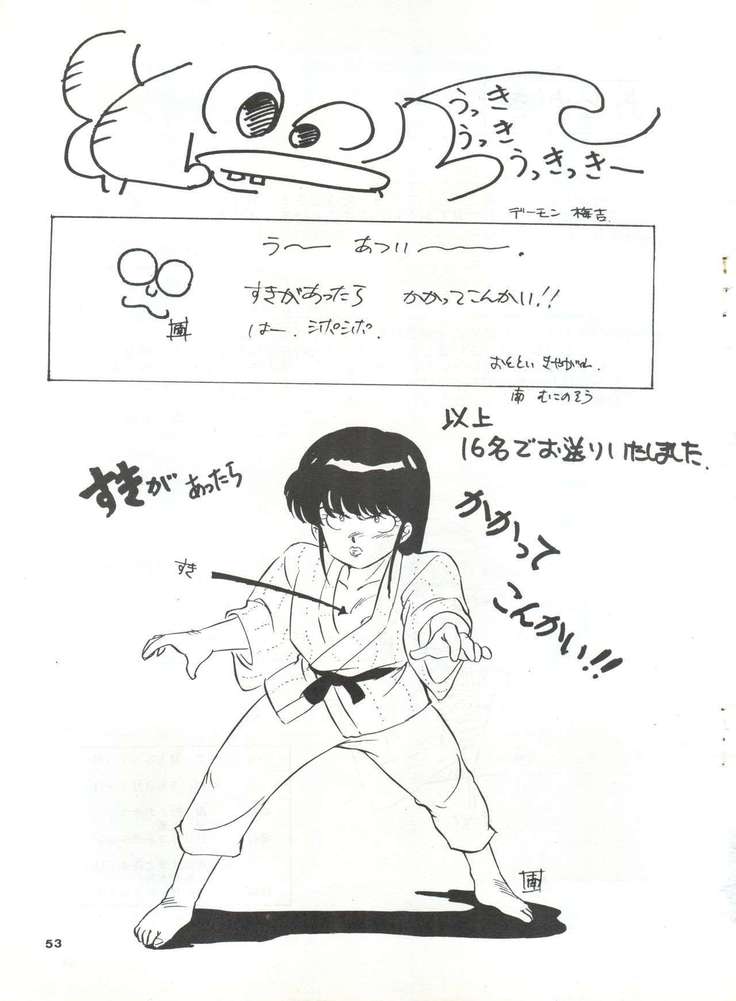 うっき
うっき
うっきっきー
デーモン 梅吉
うー あついー.
すきがあったら かかってこんかい!!
はー.シポシポ.
おととい きやがれ.
南 むこのそう
以上
16名でお送りいたしました.
すきが あったら
かかって
こんかい!!
すき
53